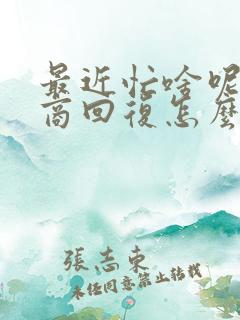 最近忙啥呢
高回復怎麼
張志東
未任同意禁止转载